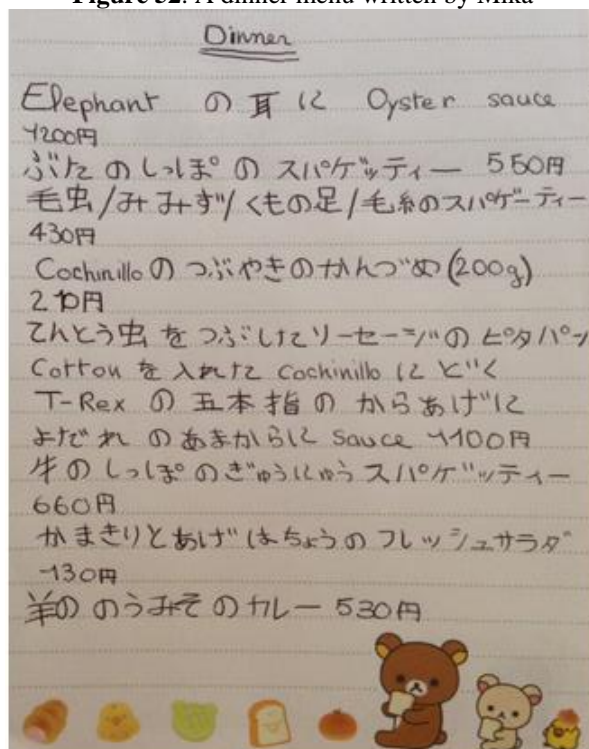 Figure 32. A dinner menu written by Mika
Dinner
Elephant の耳に Oyster sauce
1200円
ぶたのしっぽのスパゲッティー 550円
毛虫/みみず/くもの足/毛糸のスパゲーティー
430円
Cochinilloのつぶやきのかんづめ(200g)
210円
てんとう虫をつぶしたソーセージのピタパン
Cottonを入れたCochinilloにどく
T-Rex の五本指のからあげに
よだれのあまからに sauce 1100円
牛のしっぽのぎゅうにゅうスパゲッティー
660円
かまきりとあげはちょうのフレッシュサラダ
130円
羊ののうみそのカレー 530円